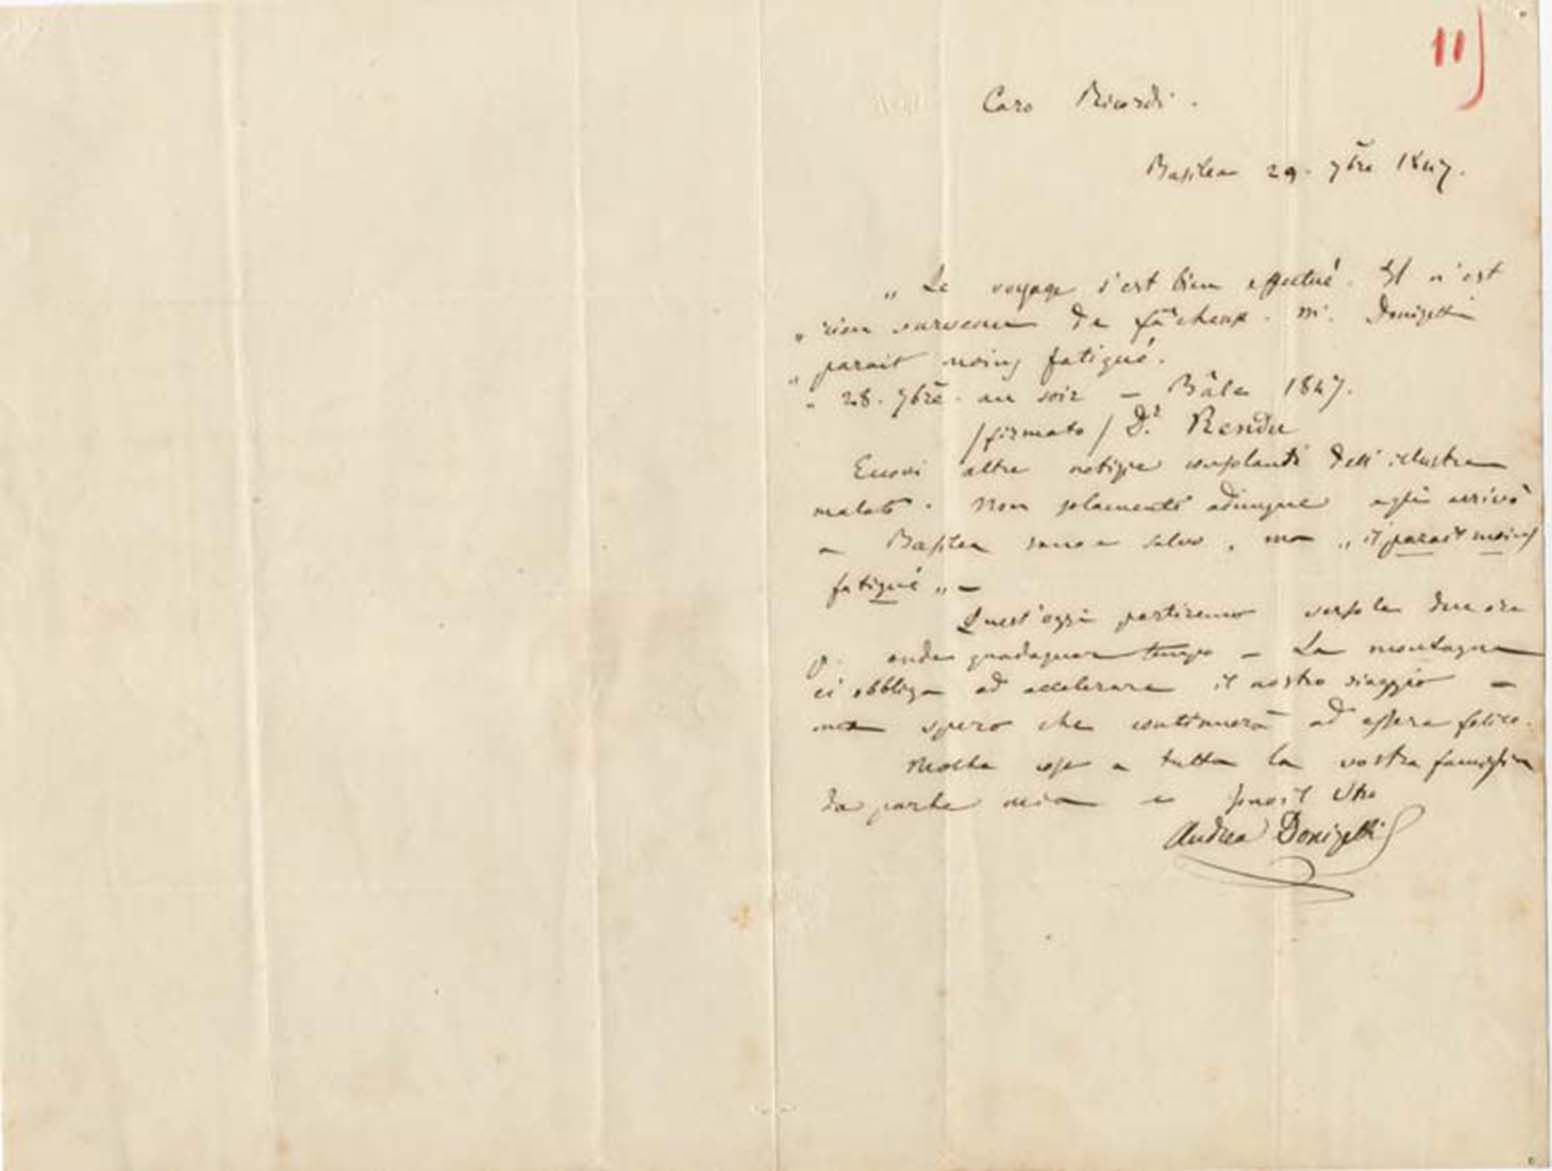 11)
Caro Ricordi.
Basilea 29. 7bre 1847.
„ Le voyage s'est bien effectué. Il n'est
„ rien survenu de fâcheux. Mr. Donizetti
„ parait moins fatigué.
„ 28. 7bre. au soir — Bâle 1847.
/firmato/ Dr. Rendu
Eccovi altre notizie consolanti dell'illustre
malato. Non solamente adunque egli arrivò
a Basilea sano e salvo, ma „ il parait moins
fatigué „ —
Quest'oggi partiremo verso le due ore
p. onde guadagnar tempo — La montagna
ci obbliga ad accelerare il nostro viaggio —
ma spero che continuerà ad essere felice.
Molte cose a tutta la vostra famiglia
da parte mia e sono il Vtro
Andrea Donizetti